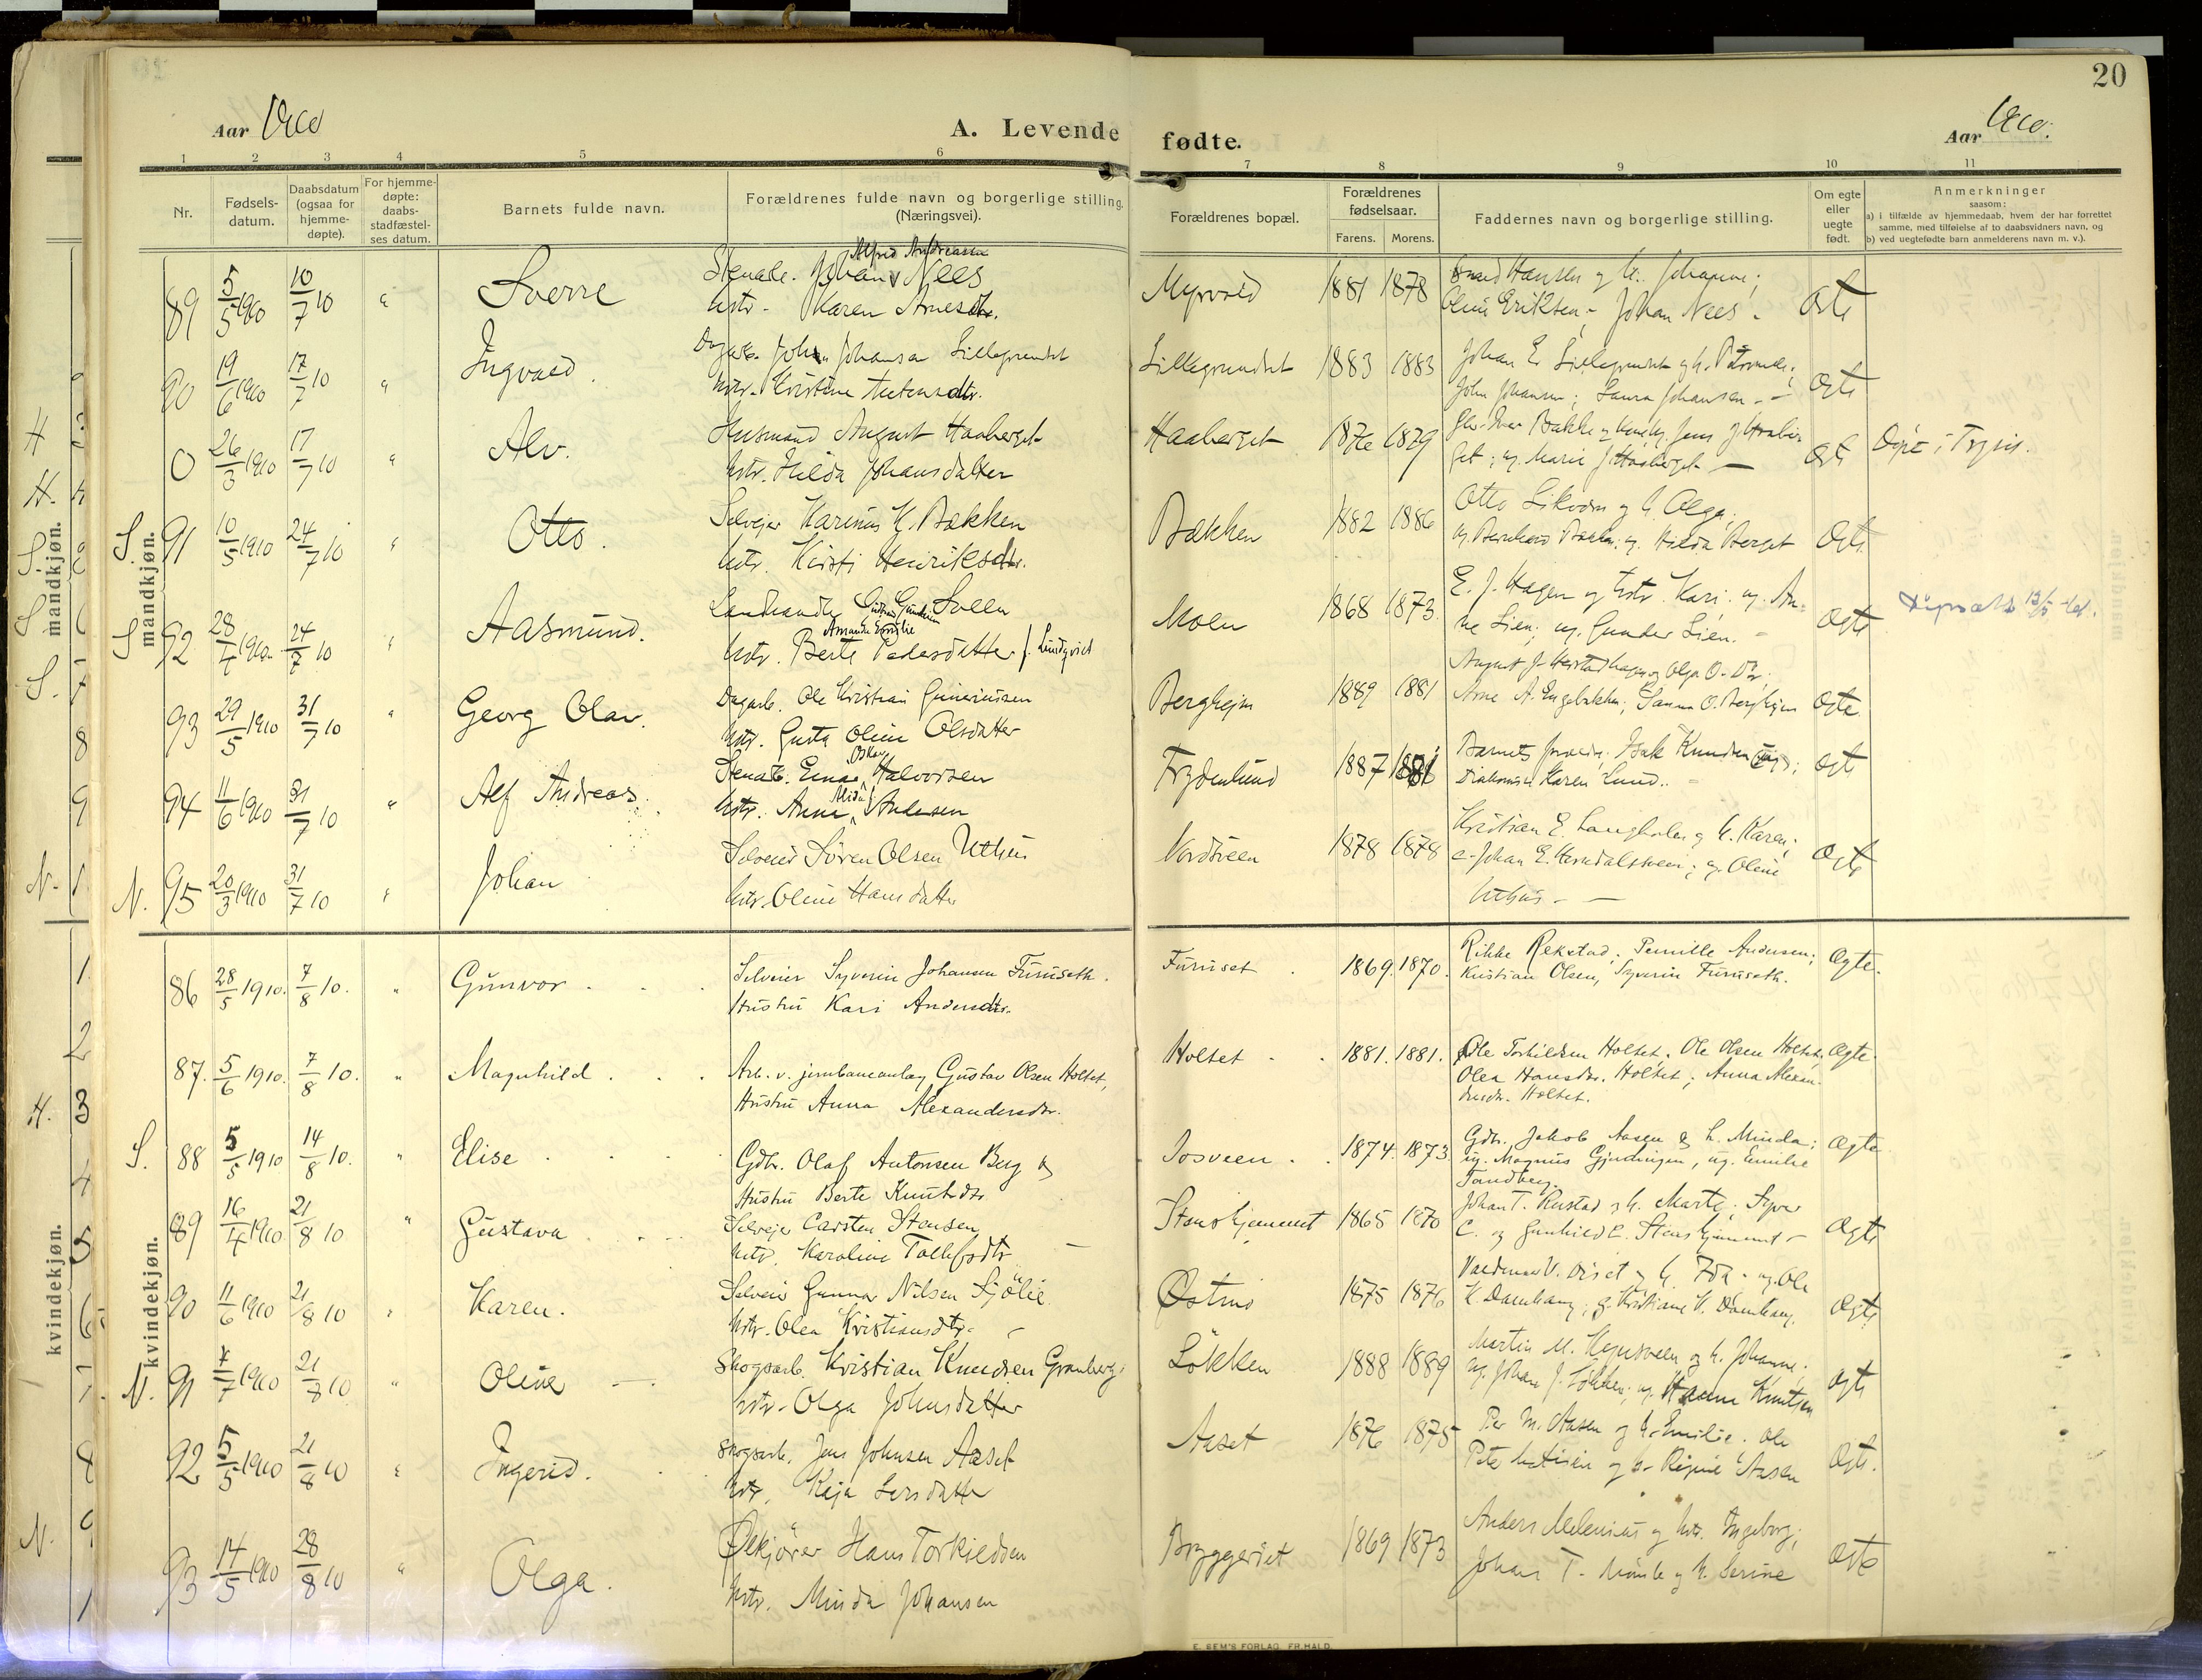 20
Aar 1910
A. Levende fødte.
Aar 1910.
1 2 3 4 5 6 7 8 9 10 11
Nr.
Fødsels-
datum.
Daabsdatum
(ogsaa for
hjemme-
døpte).
For hjemme-
døpte:
daabs-
stadfæstel-
ses datum.
Barnets fulde navn.
Forældrenes fulde navn og borgerlige stilling.
(Næringsvei).
Forældrenes bopæl.
Forældrenes
fødselsaar.
Farens. Morens.
Faddernes navn og borgerlige stilling.
Om egte
eller
uegte
født.
Anmerkninger
saasom:
a) i tilfælde av hjemmedaab, hvem der har forrettet
samme, med tilføielse af to daabsvidners navn, og
b) ved uegtefødte barn anmelderens navn m. v.).
mandkjøn.
89 5/5 1910 10/7 10 " Sverre
Alfred Andreassen
Johan Nees
Hstr. Karen Arnesdtr.
Myrvold 1881 1878
Hansen og h. Johanne;
Oline Eriksen; Johan Nees -
Ægte
90 19/6 1910 17/7 10 " Ingvald.
Dagarb. John Johansen Lillegrundset
Hstr. Kristine
Lillegrundset 1883 1883
Johan E. Lillegrundset og h.
John Johansen; Laura Johansen - -
Ægte
0 26/3 1910 17/7 10 " Alv.
Husmand August Haaberget
Hstr. Hilda Johansdatter
Haaberget 1876 1879
Bakke
ug. Marie J. Haaberget -
Ægte
Døpt i Trysil.
S. 91 10/5 1910 24/7 10 " Otto.
Selveier Karinus K. Bakken
Hstr. Kirsti Henriksdtr.
Bakken 1882 1886
Otto Likvern og h. Olga;
ug. Bernhard Bakken; ug. Hilda Berget
Ægte
S 92 28/4 1910. 24/7 10 " Aasmund.
Landhandler Sveen
Amanda Emilie
Hstr. Berte Pedersdatter f. Lindqvist
Moen 1868 1873.
E. J. Hagen og hstr. Kari; ug. An-
ne Lien; ug. Gunder Lien. -
Ægte
93 29/5 1910 31/7 10 " Georg Olav.
Dagarb. Ole Kristian Gunerinssen
Hstr. Gusta Oline Olsdatter
Berghejm 1889 1881
August J. og Olga O.
Arne A. Engebakken; Sanna O. Berghejm
Ægte
94 11/6 1910 31/7 10 " Alf Andreas.
Oskar
Stenarb. Einar Halvorsen
Alida
Hstr. Anne Andersen
Frydenlund 1887 1881
Barnets forældre; Isak Knudsen
Diakonisse Karen Lund. -
Ægte
N. 95 20/3 1910 31/7 10 " Johan
Selveier Søren Olsen Uthus
Hstr. Oline Hansdatter
Nordsveen 1878 1878
Kristian E. Langholen og h. Karen;
e. Johan E. ; ug. Oline
Uthus - -
Ægte
kvindekjøn.
86 28/5 1910. 7/8 10. " Gunvor
Selveier Syverin Johansen Furuseth.
Hustru Kari Andersdtr.
Furuset 1869. 1870.
Rikke Rekstad; Pernille Andersen;
Kristian Olsen, Syverin Furuseth.
Ægte.
87. 5/6 1910. 7/8 10. " Magnhild
Arb. v. jernbaneanlæg Gustav Olsen Holtet,
Hustru Anna Alexandersdtr.
Holtet 1881. 1881.
Ole Torkildsen Holtet; Ole Olsen Holtet;
Olea Hansdtr. Holtet; Anna Alexan-
dersdr. Holtet.
Ægte.
S. 88 5/5 1910 14/8 10. " Elise
Gdbr. Olaf Antonsen Berg og
Hustru Berte Knutsdtr.
Josveen 1874. 1873.
Gdbr. Jakob Aasen & h. Minda;
ug. Magnus Gjerdingen, ug. Emilie
Sandberg.
Ægte
89 16/4 1910 21/8 10 " Gustava
Selveje Carsten Stensen
Hstr. Karoline Tollefsdtr. -
Stenshjemmet 1865 1870
Johan T. Rustad og h. Marte; Syver
C. og Gunhild C. Stenshjemmet -
Ægte
90 11/6 1910 21/8 10 " Karen.
Selveier Gunnar Nilsen Sjølie
Hstr. Olea Kristiansdtr. -
Østmo 1875 1876
Valdemar V. Øiset og h. Ida - ug. Ole
K. Damhaug; g. Kristiane K. Damhaug.
Ægte
N. 91 4/7 1910 21/8 10 " Olive -
Skogsarb. Kristian Knudsen Granberg
Hstr. Olga Johnsdatter
Løkken 1888 1889
Martin M. og h. Johanne;
ug. Johan J. Løkken; ug. Hanna Knutsen
Ægte
92 5/5 1910 21/8 10 " Ingerid.
Skogsarb. Jens Johnsen Aaset
Hstr. Kaja Larsdatter
Aaset 1876 1875
Per M. Aasen og h. Emilie. Ole
og h. Regine Aasen
Ægte.
93 14/5 1910 28/8 10 " Olga.
Ølkjører Hans Torkildsen
Hstr. Minda Johansen
Bryggeriet 1869 1873
Anders Melenius og hstr. Ingeborg;
Johan T. og h. Serine
Ægte
E. SEM'S FORLAG, FR.HALD.